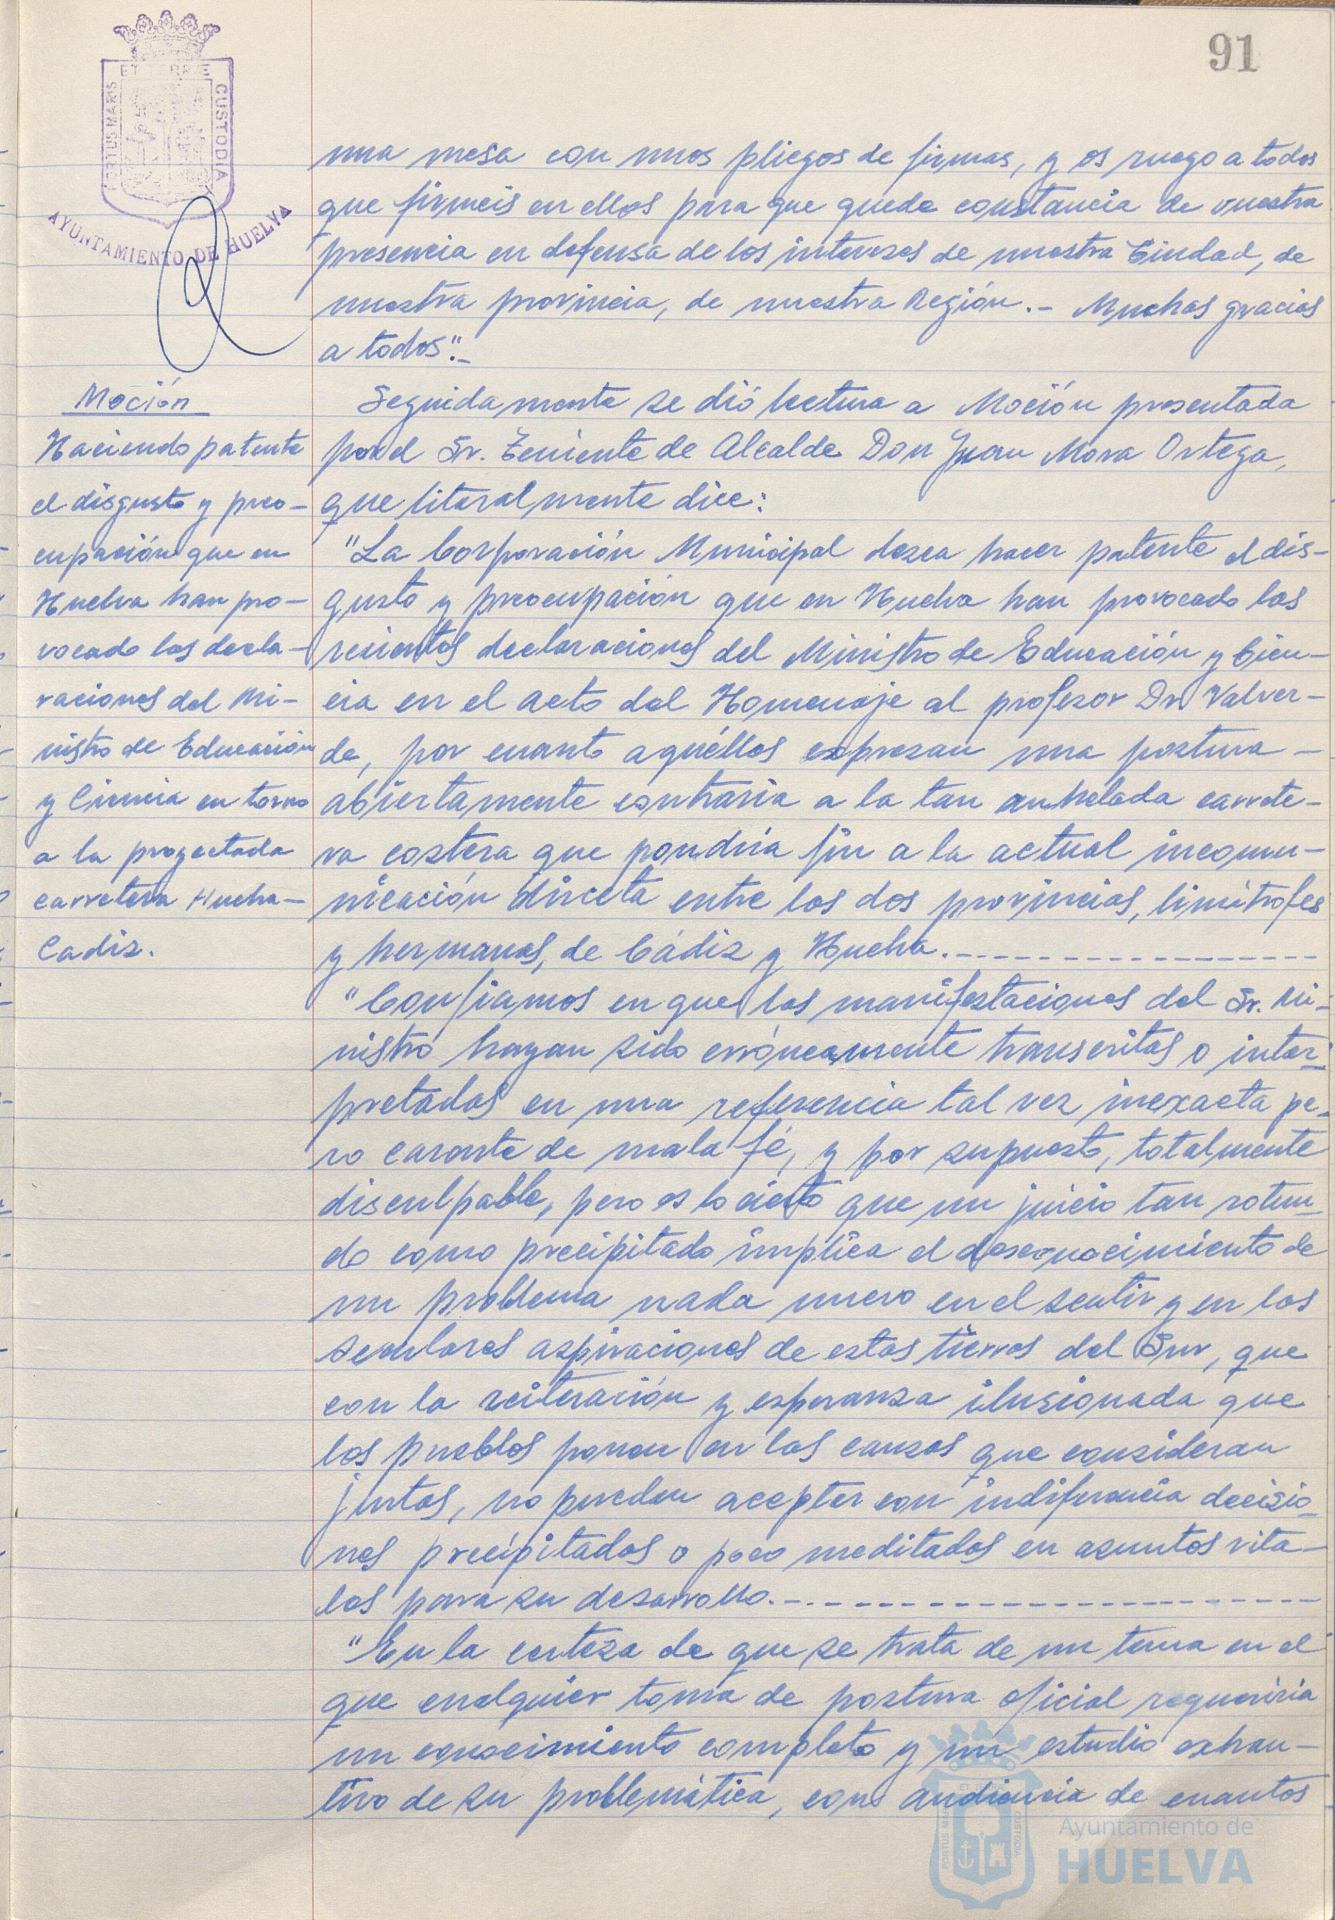 91
PORTUS MARIS ET TERRE CUSTODIA
AYUNTAMIENTO DE HUELVA
una mesa con unos pliegos de firmas, y os ruego a todos
que firmeis en ellos para que quede constancia de vuestra
presencia en defensa de los intereses de nuestra Ciudad, de
nuestra provincia, de nuestra Región.- Muchas gracias
a todos".-
Moción
Haciendo patente
el disgusto y preo-
cupación que en
Huelva han pro-
vocado las decla-
raciones del Mi-
nistro de Educación
y Ciencia en torno
a la proyectada
carretera Huelva-
Cadiz.
Seguidamente se dió lectura a Moción presentada
por el Sr. Teniente de Alcalde Don Juan Mora Ortega,
que literalmente dice:
"La Corporación Municipal desea hacer patente el dis-
gusto y preocupación que en Huelva han provocado las
recientes declaraciones del Ministro de Educación y Cien-
cia en el acto del Homenaje al profesor Dr. Valver-
de, por cuanto aquéllos expresan una postura -
abiertamente contraria a la tan anhelada carrete-
ra costera que pondría fin a la actual incomu-
nicación directa entre las dos provincias, limítrofes
y hermanas, de Cádiz y Huelva.-----------------
"Confiamos en que las manifestaciones del Sr. Mi-
nistro hayan sido erróneamente transcritas o inter-
pretadas en una referencia tal vez inexacta pe-
ro carente de mala fé, y por supuesto, totalmente
disculpable, pero es lo cierto que un juicio tan rotun-
do como precipitado implica el desconocimiento de
un problema nada nuevo en el sentir y en las
seculares aspiraciones de estas tierras del Sur, que
con la reiteración y esperanza ilusionada que
los pueblos ponen en las causas que consideran
justas, no pueden aceptar con indiferencia decisio-
nes precipitadas o poco meditadas en asuntos vita-
les para su desarrollo.-------------------------
"En la certeza de que se trata de un tema en el
que cualquier toma de postura oficial requeriria
un conocimiento completo y un estudio exhaus-
tivo de su problemática, con audiencia de cuantos
PORTUS MARIS ET TERRE CUSTODIA
Ayuntamiento de
HUELVA